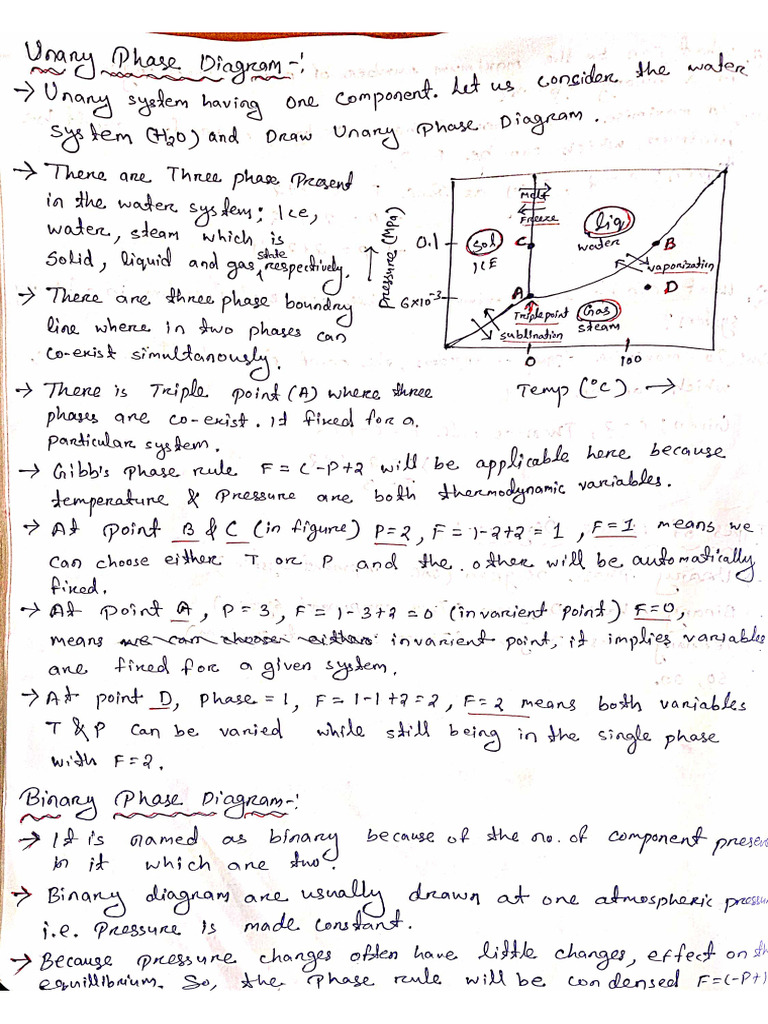 Unary Phase Diagram-:
→ Unary system having one component. Let us consider the water
system (H2O) and Draw Unary Phase Diagram.
→ There are Three phase Present
in the water system; Ice,
water, steam which is
Solid, liquid and gas state respectively.
→ There are three phase boundry
line where in two phases can
co-exist simultanously.
Pressure (Mpa) →
0.1
6×10⁻³
Melt
Freeze
Sol
ICE
C
liq
water
B
vaporization
D
A
Triple point
Gas
steam
sublination
0
100
Temp (°C) →
→ There is Triple Point (A) where three
phases are co-exist. It fixed for a
particular system.
→ Gibb's phase rule F = C-P+2 will be applicable here because
temperature & Pressure are both thermodynamic variables.
→ At point B & C (in figure) P=2, F = 1-2+2 = 1, F=1 means we
can choose either T or P and the other will be automatically
fixed.
→ At Point A, P=3, F = 1-3+2 = 0 (invarient point) F=0,
means we can choose either invarient point, it implies variables
are fixed for a given system.
→ At point D, Phase = 1, F = 1-1+2 = 2, F=2 means both variables
T & P can be varied while still being in the single phase
with F=2.
Binary Phase Diagram-:
→ It is named as binary because of the no. of component presen
in it which are two.
→ Binary diagram are usually drawn at one atmospheric pressu
i.e. Pressure is made constant.
→ Because pressure changes often have little changes, effect on th
equillibrium. So, the Phase rule will be condensed F=C-P+1